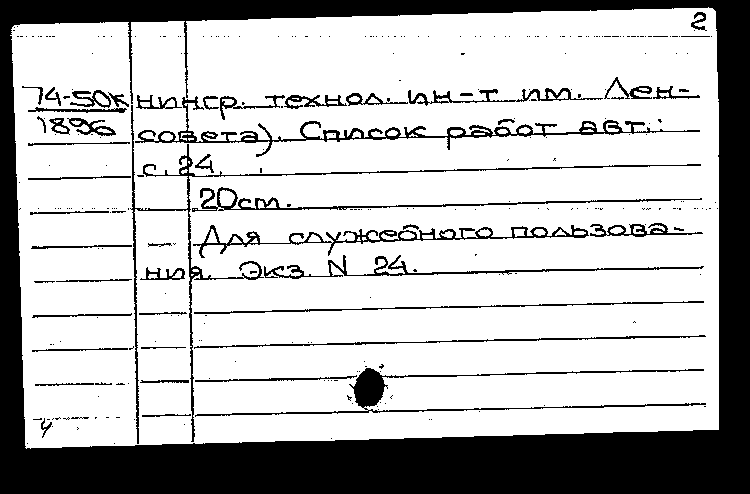 2
74-50к нингр. технол. ин-т им. Лен-
1896 совета). Список работ авт.:
с. 24.
20см.
— Для служебного пользова-
ния. Экз. N 24.
ч